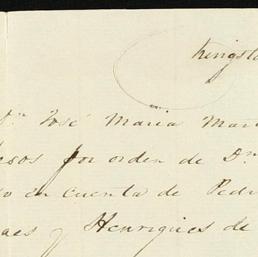 Kingst
Dn José Maria Mar
esos por orden de Dn
o en cuenta de Pedr
aes y Henriques de